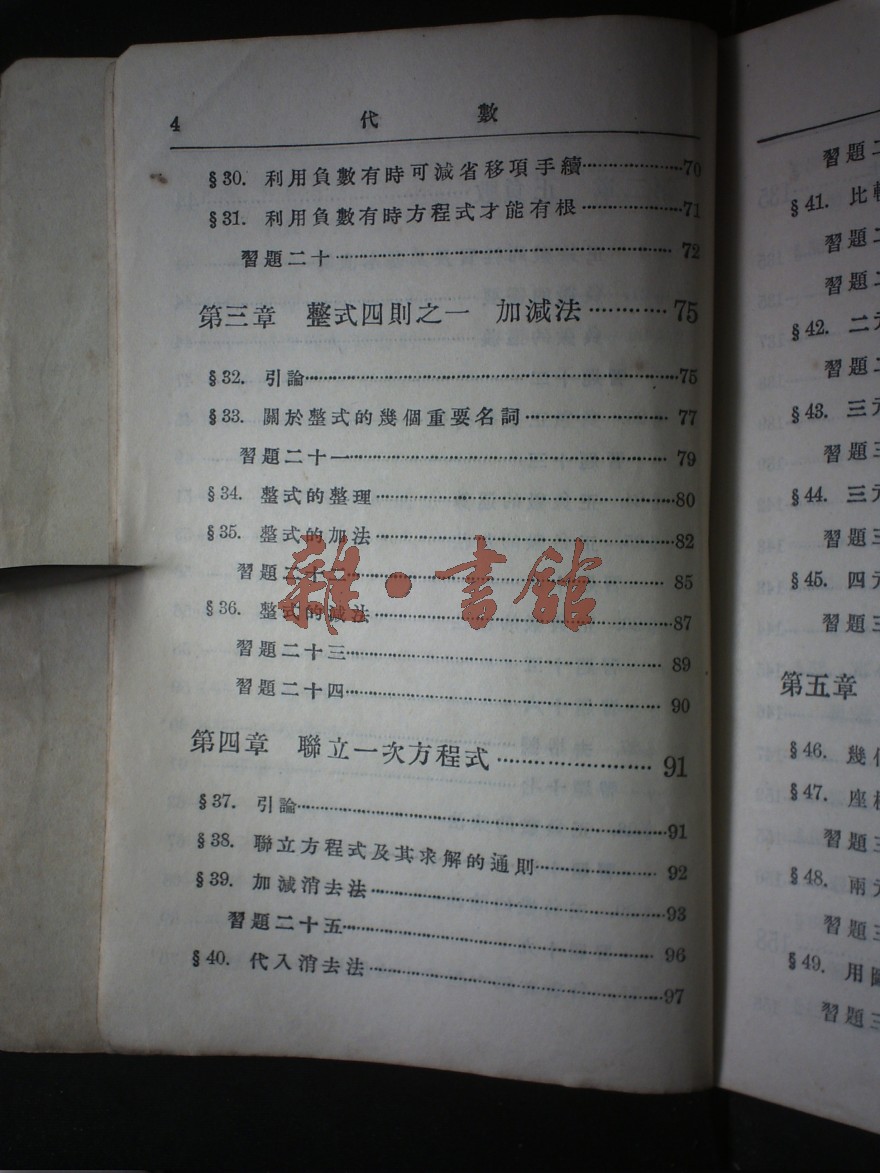 4 代 數
§30. 利用負數有時可減省移項手續……………70
§31. 利用負數有時方程式才能有根……………71
習題二十……………72
第三章 整式四則之一 加減法…………75
§32. 引論……………75
§33. 關於整式的幾個重要名詞……………77
習題二十一……………79
§34. 整式的整理……………80
§35. 整式的加法……………82
習題二十二……………85
§36. 整式的減法……………87
習題二十三……………89
習題二十四……………90
第四章 聯立一次方程式……………91
§37. 引論……………91
§38. 聯立方程式及其求解的通則……………92
§39. 加減消去法……………93
習題二十五……………96
§40. 代入消去法……………97
雜·書館
習題二
§41. 比
習題二
習題二
§42. 二元
習題二
§43. 三元
習題三
§44. 三元
習題三
§45. 四元
習題三
第五章
§46. 幾
§47. 座
習題三
§48. 兩元
習題三
§49. 用
習題三